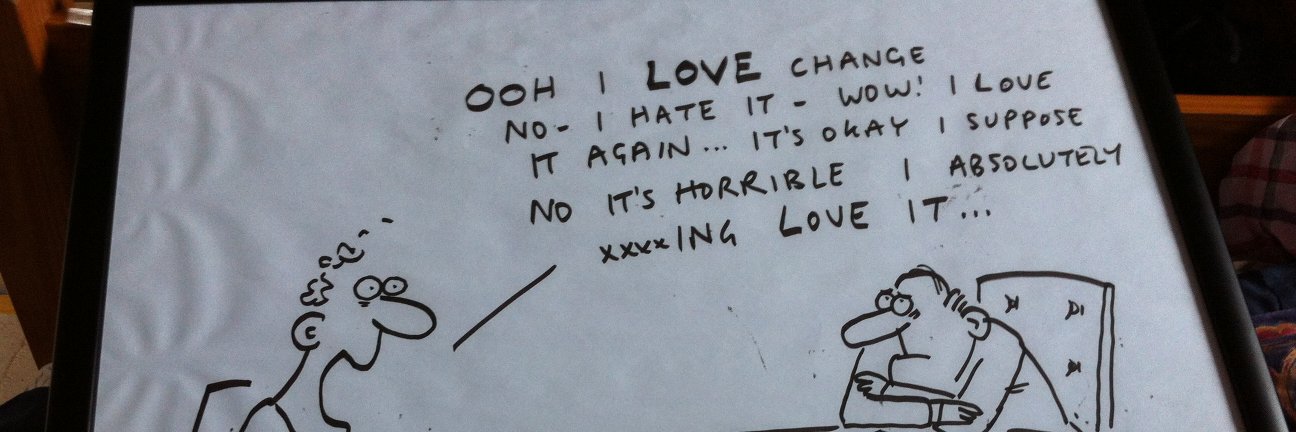 OOH I LOVE CHANGE
NO - I HATE IT - WOW! I LOVE
IT AGAIN... IT'S OKAY I SUPPOSE
NO IT'S HORRIBLE I ABSOLUTELY
xxxxING LOVE IT...